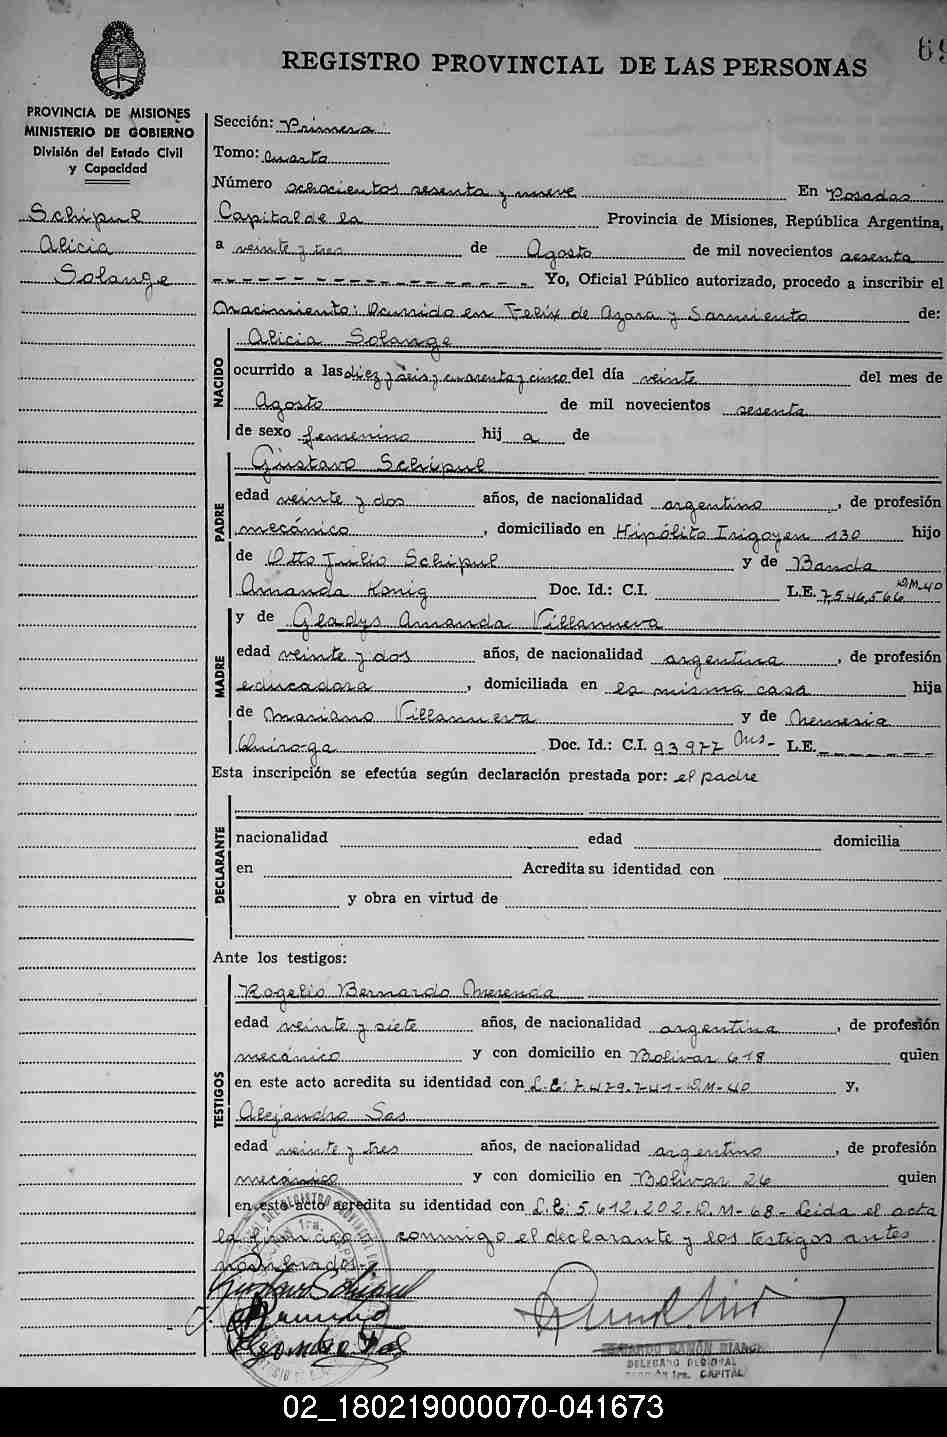 69
REGISTRO PROVINCIAL DE LAS PERSONAS
PROVINCIA DE MISIONES
MINISTERIO DE GOBIERNO
División del Estado Civil
y Capacidad
Schipul
Alicia
Solange
Sección: Primera
Tomo: Cuarto
Número ochocientos sesenta y nueve En Posadas
Capital de la Provincia de Misiones, República Argentina,
a veinte y tres de Agosto de mil novecientos sesenta
Yo, Oficial Público autorizado, procedo a inscribir el
Nacimiento: Ocurrido en Felix de Azara y Sarmiento de:
NACIDO
Alicia Solange
ocurrido a las diez y seis y cuarenta y cinco del día veinte del mes de
Agosto de mil novecientos sesenta
de sexo femenino hij a de
PADRE
Gustavo Schipul
edad veinte y dos años, de nacionalidad argentino, de profesión
mecánico, domiciliado en Hipólito Irigoyen 130 hijo
de Otto Julio Schipul y de Banda
Amanda Konig Doc. Id.: C.I. L.E. 7546,566 DM-40
MADRE
y de Gladys Amanda Villanueva
edad veinte y dos años, de nacionalidad argentina, de profesión
educadora, domiciliada en la misma casa hija
de Mariano Villanueva y de Nemesia
Quiroga Doc. Id.: C.I. 93977 Mis- L.E.
Esta inscripción se efectúa según declaración prestada por: el padre
DECLARANTE
nacionalidad edad domicilia
en Acredita su identidad con
y obra en virtud de
Ante los testigos:
TESTIGOS
Rogelio Bernardo Merenda
edad veinte y siete años, de nacionalidad argentina, de profesión
mecánico y con domicilio en Bolivar 618 quien
en este acto acredita su identidad con L.E: 7.479.741-D.M-40 y,
Alejandro Sas
edad veinte y tres años, de nacionalidad argentino, de profesión
mecánico y con domicilio en Bolivar 26 quien
en este acto acredita su identidad con L.E: 5.612.202-D.M-68- Leida el acta
la firman con conmigo el declarante y los testigos antes
nombrados-
Gustavo Schipul
DELEGADO REGIONAL
SECCIÓN 1ra. CAPITAL
02_180219000070-041673